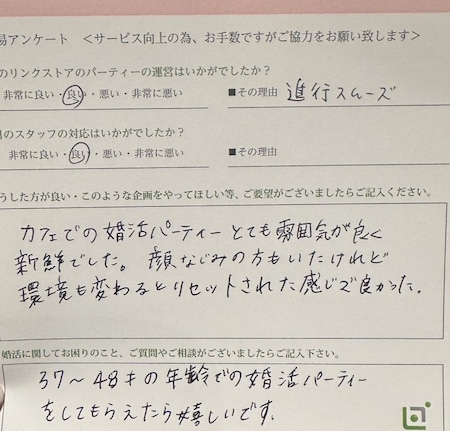 易アンケート ＜サービス向上の為、お手数ですがご協力をお願い致します＞
のリンクストアのパーティーの運営はいかがでしたか？
非常に良い・良い・悪い・非常に悪い ■その理由 進行スムーズ
のスタッフの対応はいかがでしたか？
非常に良い・良い・悪い・非常に悪い ■その理由
うした方が良い・このような企画をやってほしい等、ご要望がございましたらご記入ください。
カフェでの婚活パーティーとても雰囲気が良く
新鮮でした。顔なじみの方もいたけれど
環境も変わるとリセットされた感じで良かった。
婚活に関してお困りのこと、ご質問やご相談がございましたらご記入下さい。
37～48才の年齢での婚活パーティー
をしてもらえたら嬉しいです。